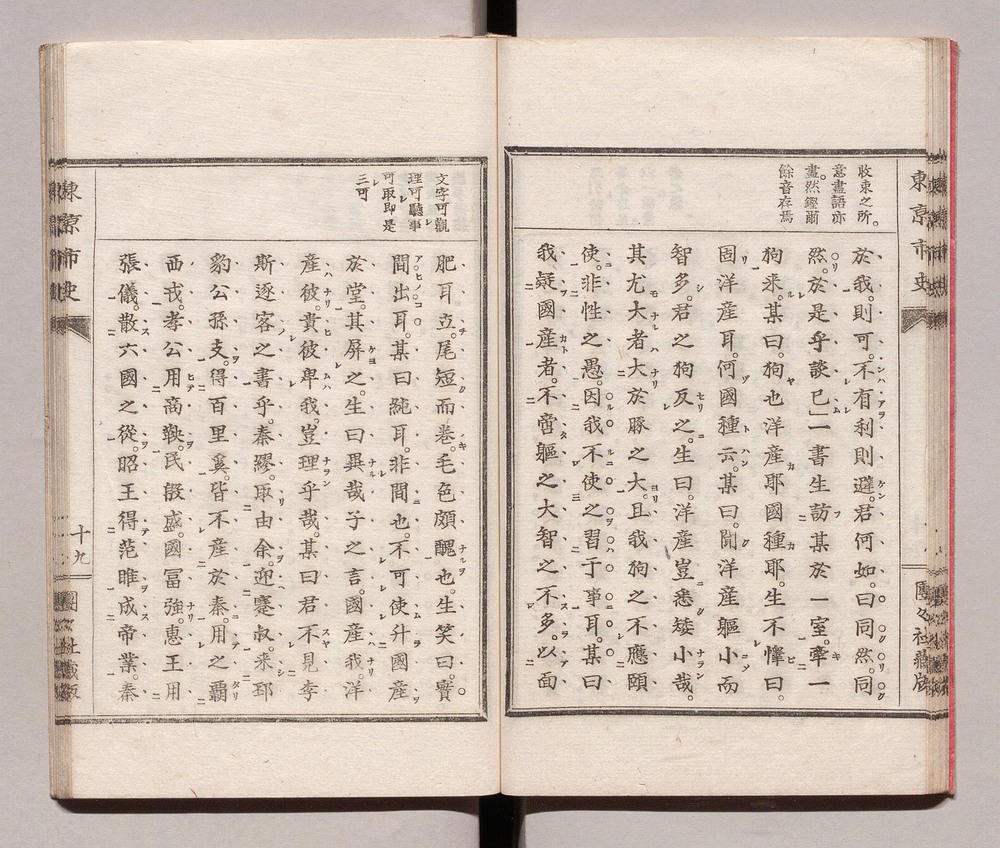 東京市史
團々社藏版
收束之所。
意盡語亦
盡。然鏗爾
餘音存焉
於我。則可。不有利則避。君何如。曰同然。同
然。於是乎談已」一書生訪某於一室。牽一
狗來。某曰。狗也洋產耶國種耶。生不憚曰。
固洋產耳。何國種云。某曰。聞洋產軀小而
智多。君之狗反之。生曰。洋產豈悉矮小哉。
其尤大者大於豚之大。且我狗之不應頤
使。非性之愚。因我不使之習于事耳。某曰
我疑國產者。不啻軀之大智之不多。以面
文字可觀
理可聽事
可取即是
三可
肥耳立。尾短而卷。毛色頗醜也。生笑曰。實
間出耳。某曰純耳。非間也。不可使升國產
於堂。其屏之。生曰異哉子之言。國產我。洋
產彼。貴彼卑我。豈理乎哉。某曰君不見李
斯逐客之書乎。秦繆。取由余。迎蹇叔。來邳
豹公孫支。得百里奚。皆不產於秦。用之霸
西戎。孝公用商鞅。民殷盛。國冨強。惠王用
張儀。散六國之從。昭王得范睢。成帝業。秦
東京市史
十九
團々社藏版